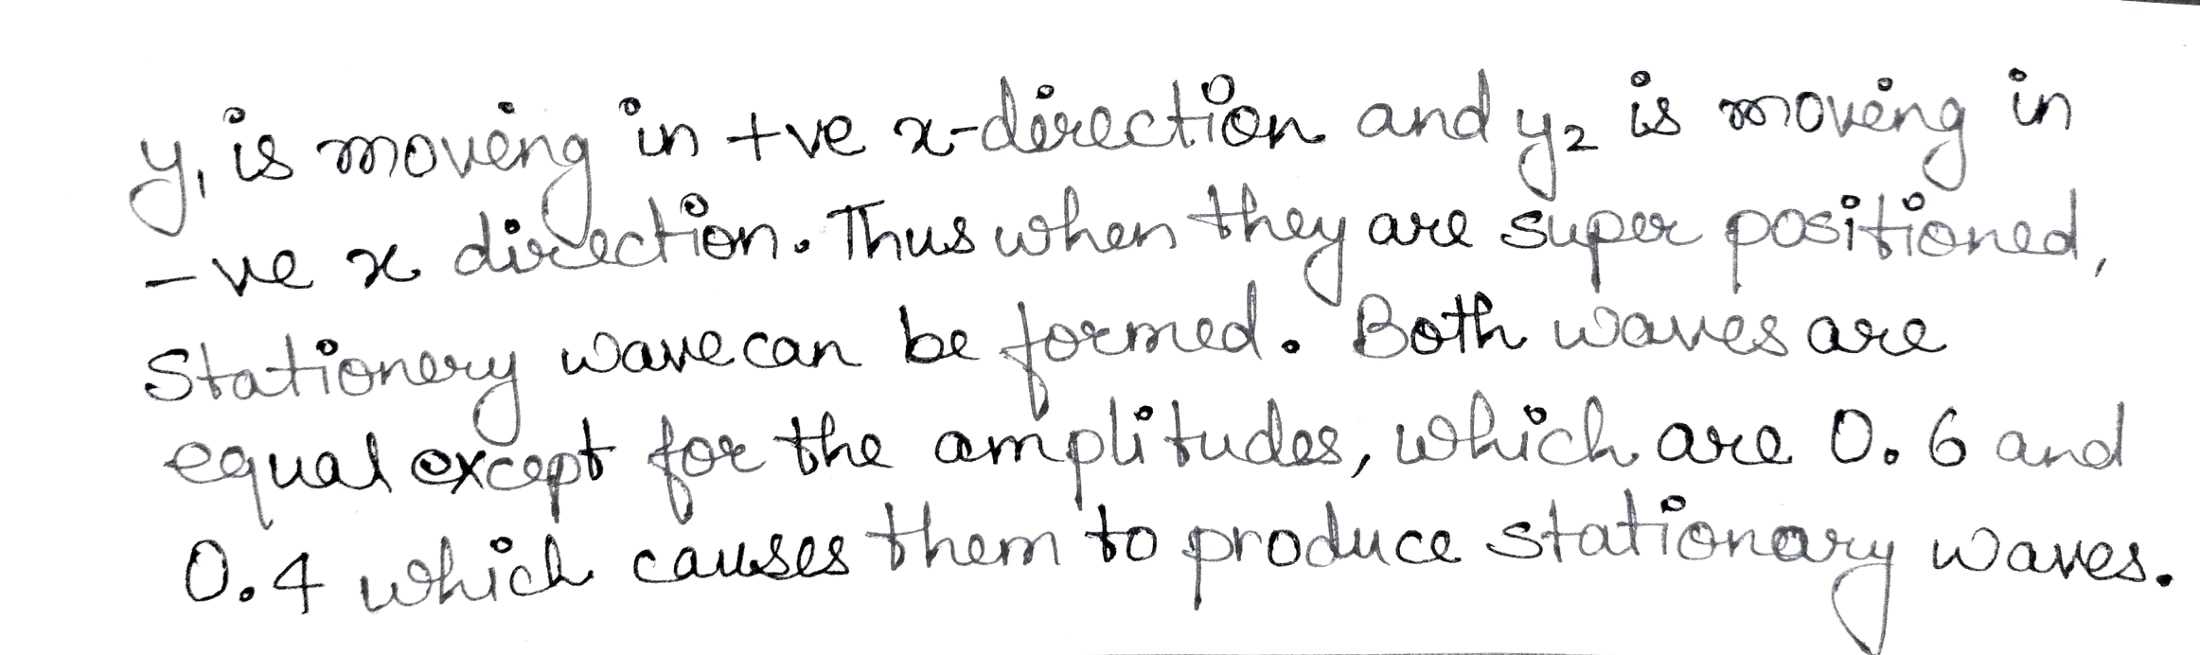 y₁ is moving in +ve x-direction and y₂ is moving in
-ve x direction. Thus when they are super positioned,
Stationery wave can be formed. Both waves are
equal except for the amplitudes, which are 0.6 and
0.4 which causes them to produce stationary waves.